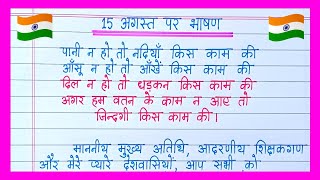 15 अगस्त पर भाषण
पानी न हो तो नदियाँ किस काम की
आँसू न हो तो आँखें किस काम की
दिल न हो तो धड़कन किस काम की
अगर हम वतन के काम न आए तो
जिन्दगी किस काम की।
माननीय मुख्य अतिथि, आदरणीय शिक्षकगण
और मेरे प्यारे देशवासियों, आप सभी को